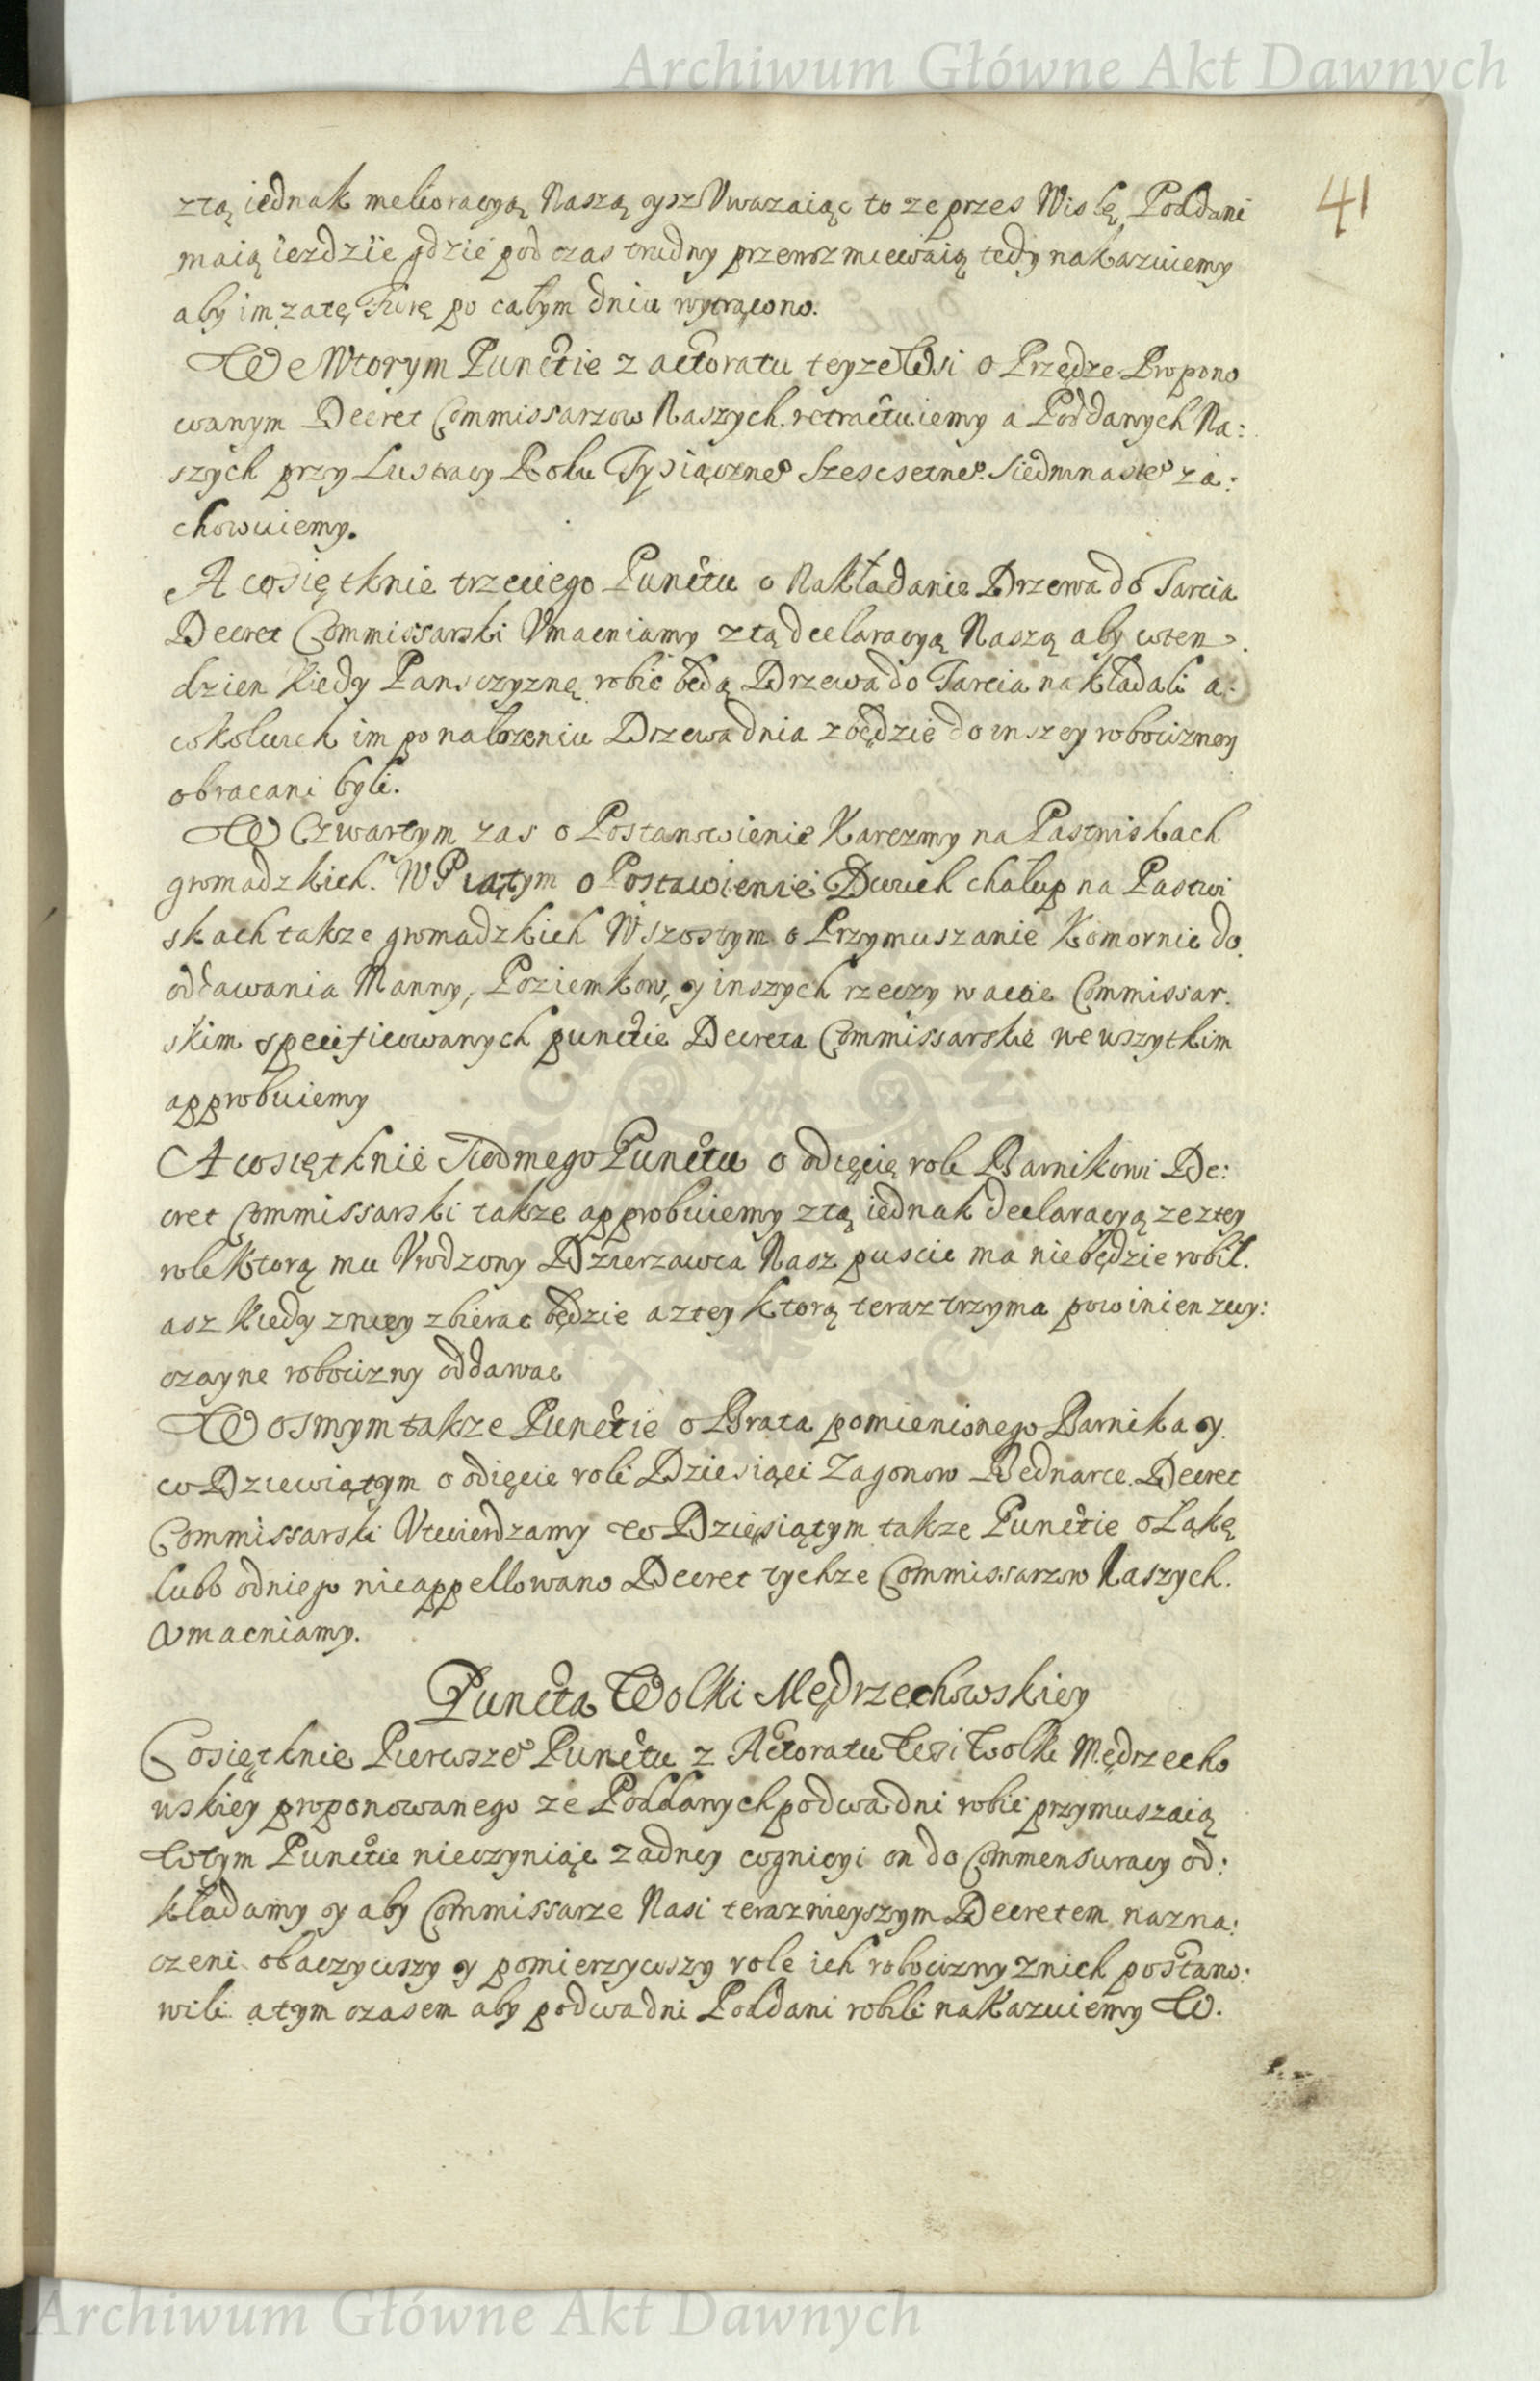 Archiwum Główne Akt Dawnych
41
ztą iednak melioracyą Naszą ysz Uwazaiąc to ze przes Wisłę Poddani
maią iezdzie gdzie pod czas trudny przewoz miewaią tedy nakazuiemy
aby im zatę Furę po całym dniu wytrącono.
We Wtorym Punctie z actoratu teyze Wsi o Przędze Propono
wanym Decret Commissarzow Naszych retractuiemy a Poddanych Na:
szych przy Lustracy Roku Tysiączneo Szescsetneo Siedmnasteo za:
chowuiemy.
A cosiętknie trzeciego Punctu o Nakładanie Drzewa do Tarcia
Decret Commissarski Umacniamy ztą declaracyą Naszą aby wten
dzien kiedy Panszczyznę robic będą Drzewa do Tarcia nakładali a:
wkoluich im po nałozeniu Drzewa dnia zbędzie do inszey robocizney
obracani byli.
W Czwartym zas o Postanowienie Karczmy na Pastwiskach
gromadzkich. W Piątym o Postawienie Dwuch chałup na Pastwi
skach takze gromadzkich W szostym o Przymuszanie Komornic do
oddawania Manny, Poziemkow, y inszych rzeczy w accie Commissar.
skim specificowanych punctie Decreta Commissarskie we wszytkim
approbuiemy
A cosiętknie Siodmego Punctu o odięcię role Barnikowi De:
cret Commissarski takze approbuiemy ztą iednak declaracyą ze ztey
role ktorą mu Urodzony Dzierzawca Nasz puscic ma niebędzie robił.
asz kiedy zniey zbierac będzie a ztey ktorą teraz trzyma powinien zwy:
czayne robocizny oddawac
W osmym takze Punctie o Brata pomienionego Barnika y
w Dziewiątym o odięcie roli Dziesiąci Zagonow Bednarce Decret
Commissarski Utwierdzamy w Dziesiątym takze Punctie o Łąkę
lubo odniego nieappellowano Decret tychze Commissarzow Naszych.
Umacniamy.
Puncta Wolki Mędrzechowskiey
Cosiętknie Pierwszeo Punctu z Actoratu Wsi Wolki Mędrzecho
wskiey proponowanego ze Poddanych podwa dni robic przymuszaią
wtym Punctie nieczyniąc zadney cognicyi on do Commensuracy od:
kładamy y aby Commissarze Nasi teraznieyszym Decretem nazna:
czeni obaczywszy y pomierzywszy role ich robocizny znich postano:
wili atym czasem aby podwa dni Poddani robili nakazuiemy W.
Archiwum Główne Akt Dawnych